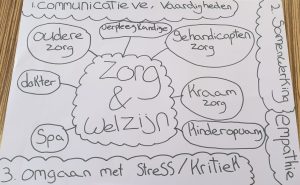 1. Communicatieve, Vaardigheden
2. Samenwerking
Empathie
Verpleegkundige
oudere
zorg
Gehandicapten
zorg
dokter
Zorg
&
Welzijn
Kraam
zorg
Spa
Kinderopvang
3. omgaan met Stress/Kritiek